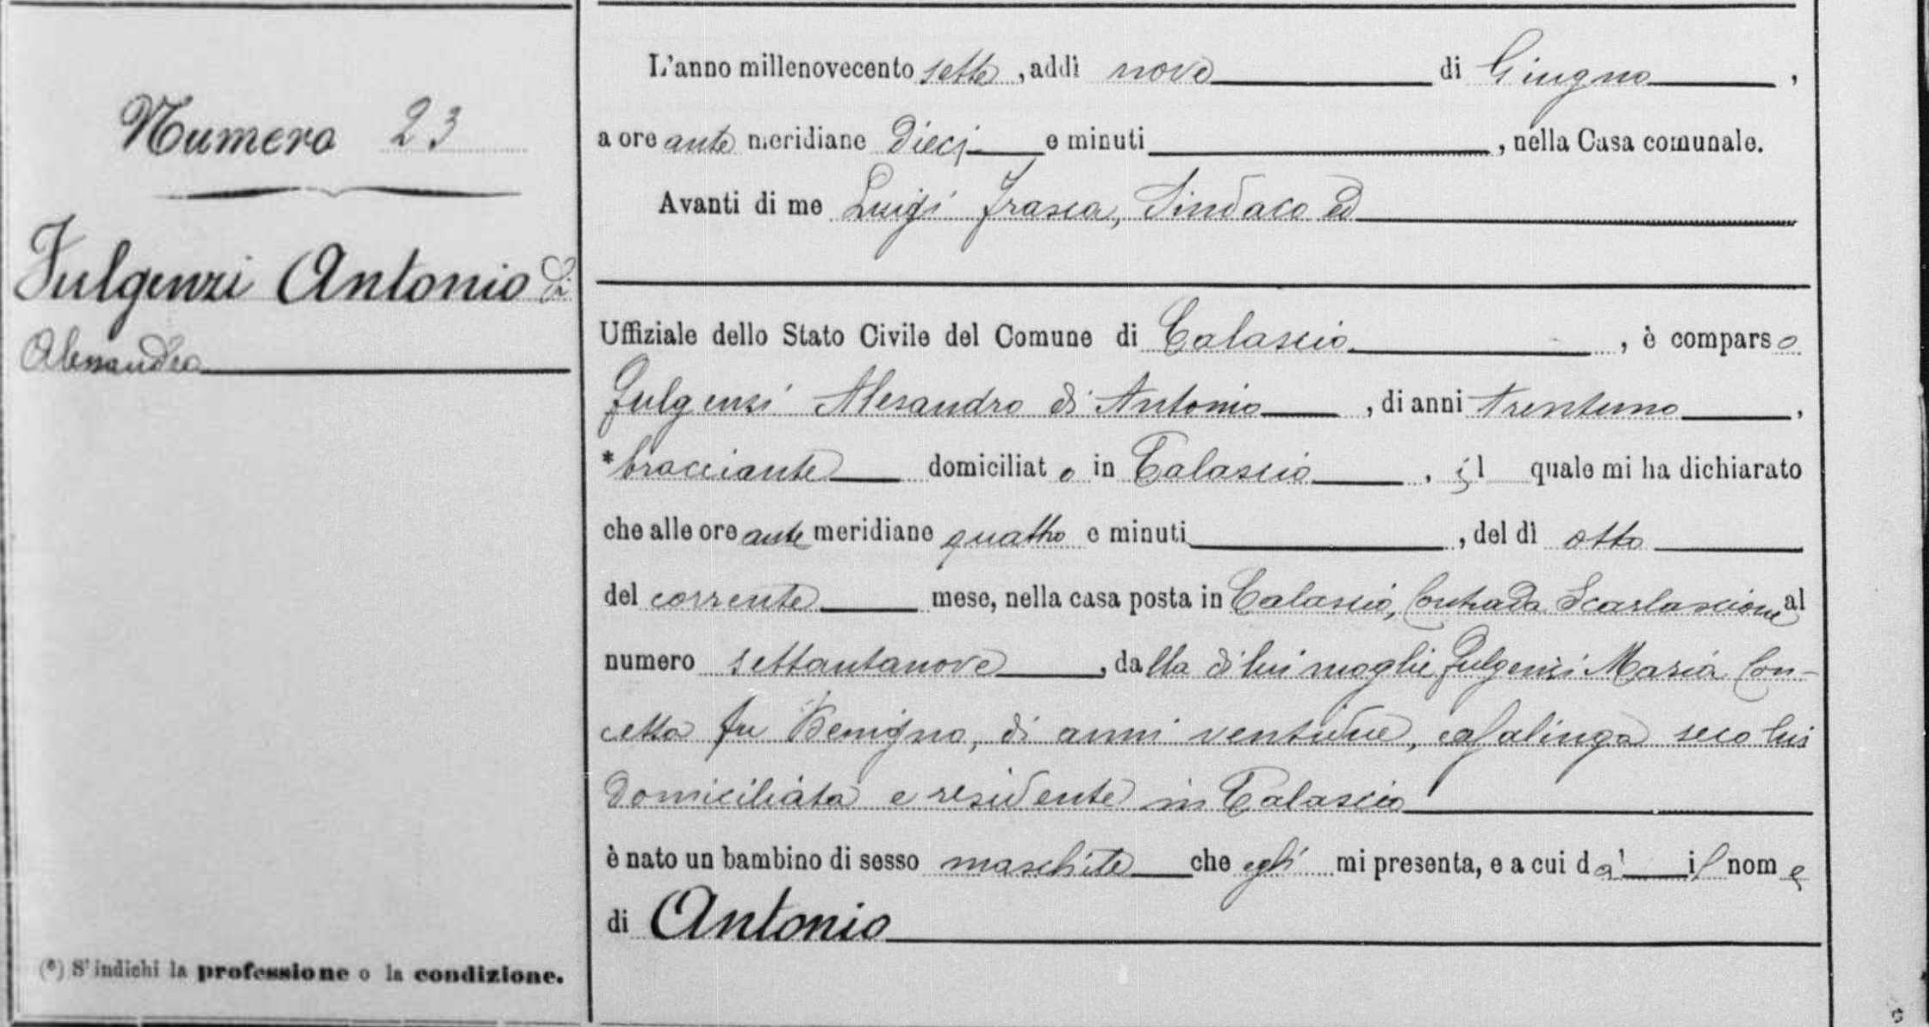 Numero 23
Fulgenzi Antonio di
Alessandro
(*) S'indichi la professione o la condizione.
L'anno millenovecento sette, addì nove di Giugno,
a ore ante meridiane dieci e minuti, nella Casa comunale.
Avanti di me Luigi Frasca, Sindaco ed
Uffiziale dello Stato Civile del Comune di Calascio, è comparso
Fulgenzi Alesandro di Antonio, di anni trentuno,
*bracciante domiciliato in Calascio, il quale mi ha dichiarato
che alle ore ante meridiane quattro e minuti, del dì otto
del corrente mese, nella casa posta in Calascio, Contrada Scarlascione al
numero settantanove, dalla di lui moglie Fulgenzi Maria Con-
cetta fu Benigno, di anni ventidue, casalinga seco lui
domiciliata e residente in Calascio
è nato un bambino di sesso maschile che egli mi presenta, e a cui dà il nome
di Antonio